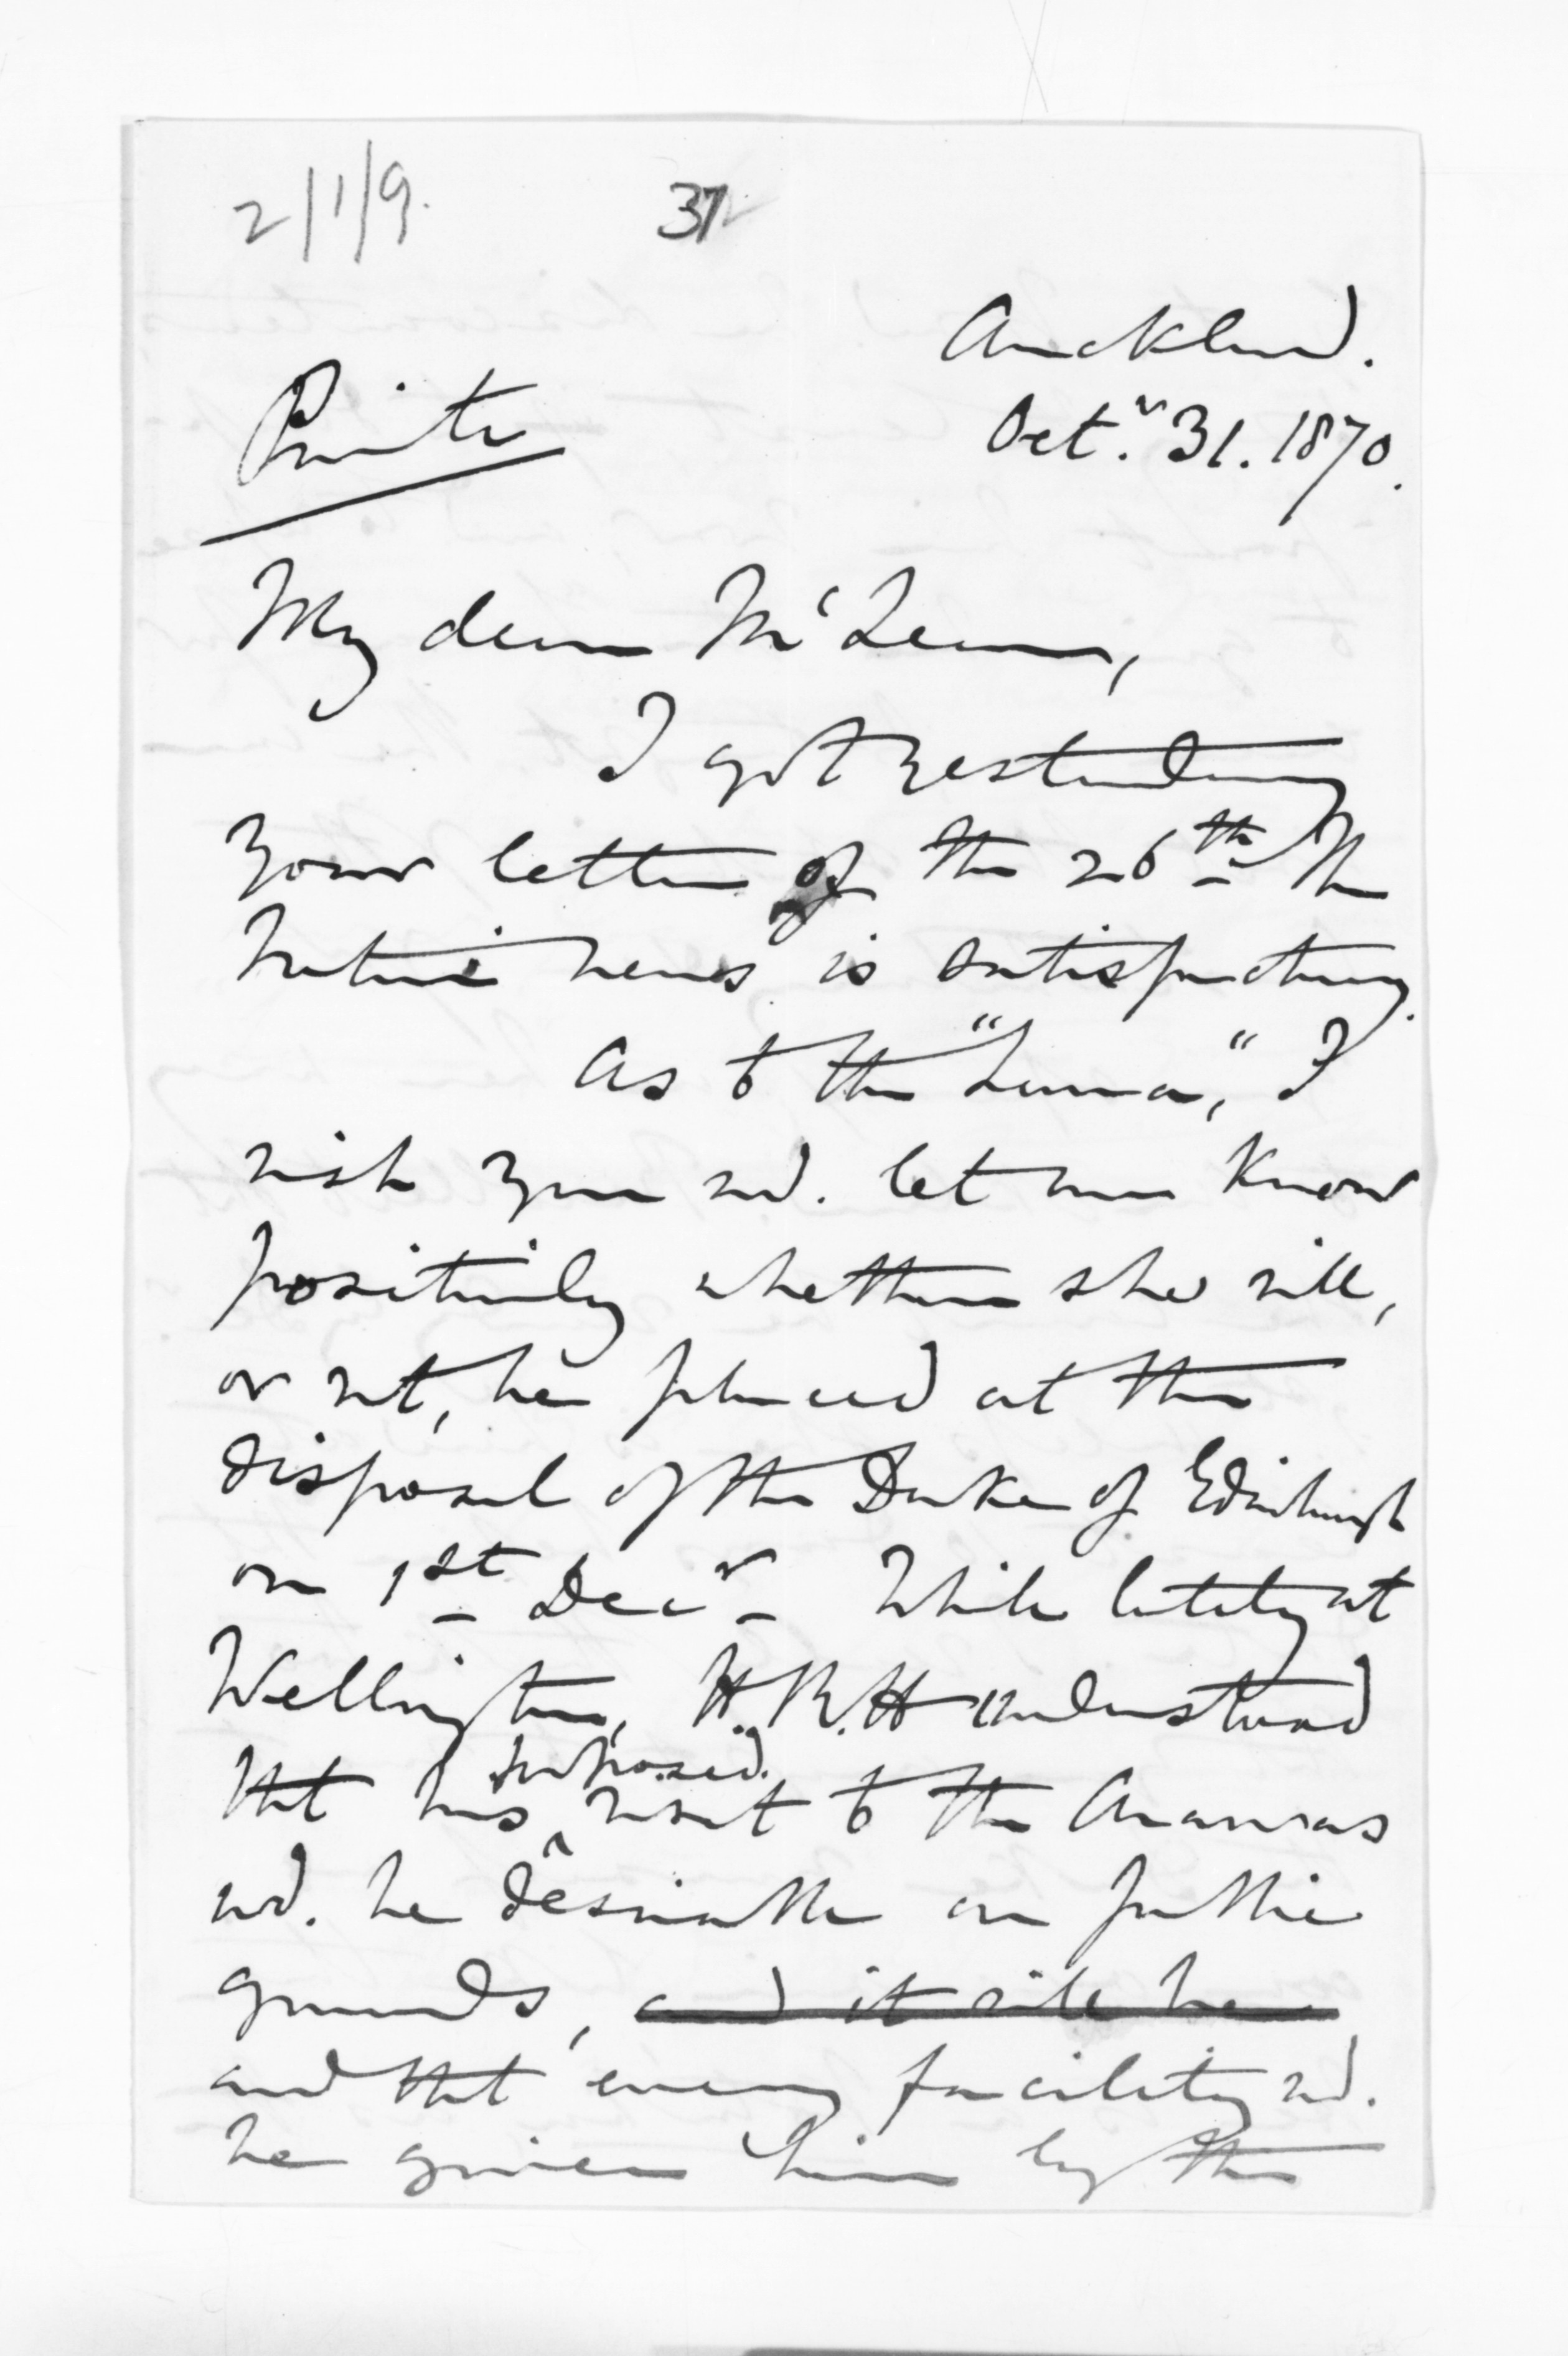 2/1/9.
37
Auckland.
Octr. 31. 1870.
Private
My dear McLean,
I got yesterday
your letter of the 26th The
Native news is satisfactory.
As to the "Luna," I
wish you wd. let me know
positively whether she will,
or not, be placed at the
disposal of the Duke of Edinburgh
on 1st Decr While lately at
Wellington, H.R.H understood
proposed
that his visit to the Arawas
wd. be desirable on public
grounds, and it will be
and that every facility wd.
be given him by the